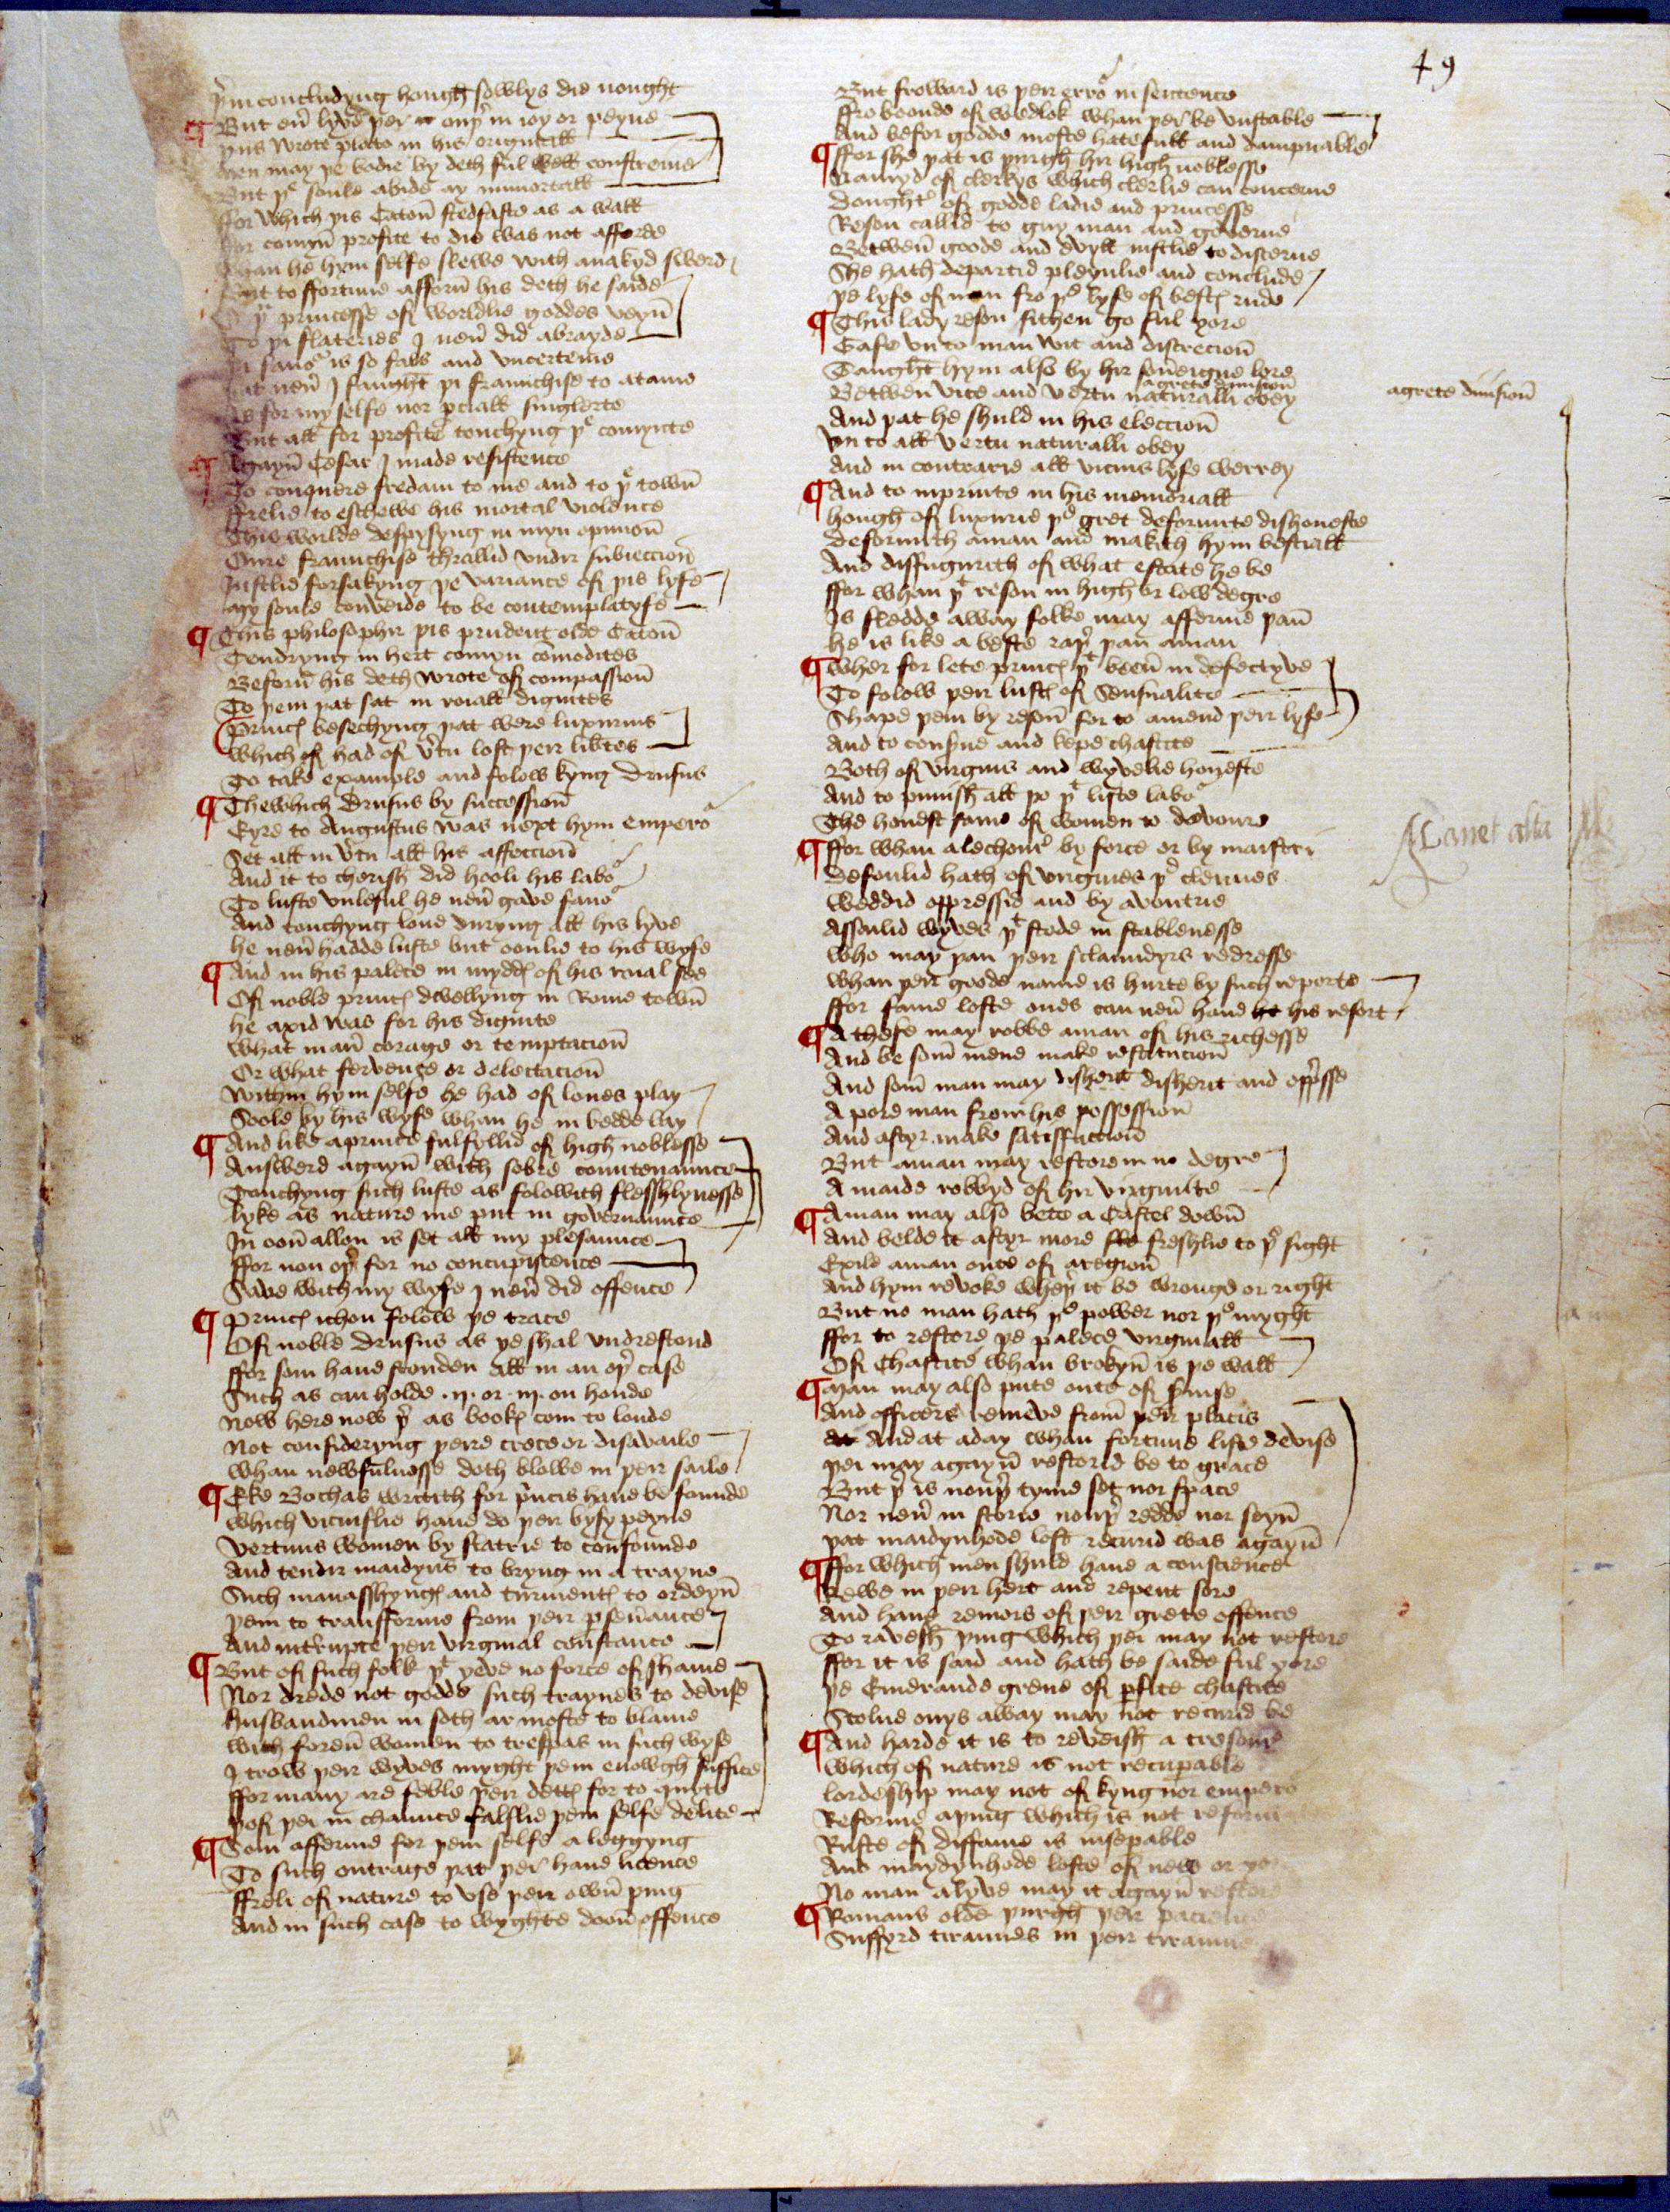 49
þerin concludyng hough sowlys die nought
¶ But eu̅ lyve þer in ioy or peyne
þus wrote plato in his originall
Men may þe bodie by deth ful well constreine
But þe soule abide ay immortall
ffor which þis Catou̅ stedfaste as a wall
ffor comyn̅ profite to die was not afferde
Whan he hym selfe slewe with anakyd swerd
But to ffortune afforn̅ his deth he saide
O þu princesse of worldlie goddes veyn̅
To þi flateries I neu̅ did abrayde
þi fauor is so fals and uncerteine
þat neu̅ I faught þi fraunchise to atame
As for my selfe nor pciall singlerte
But all for profite touchyng þe comynte
¶ Agayn̅ Cesar I made resistence
To conquere fredam to me and to þe town̅
ffrelie to eschewe his mortal violence
This worlde despysyng in myn opinion̅
Oure fraunchise thrallid undir subieccion̅
Justlie forsakyng þe variance of þis lyfe
My soule conveide to be contemplatyfe
¶ This philosophir þis prudent olde Caton̅
Tendryng in hert comyn co̅modites
Beforn̅ his deth wrote of compassion̅
To þem þat sat in roiall dignites
Princes besechyng þat were luxurius
Which of had of vtu lost þeir libtes
To take example and folow kyng Drusus
¶ Thewhich Drusus by succession̅
Eyre to Augustus was next hym emperor
Set all in vtu all his affeccion̅
And it to cherish did hooli his labor
To luste unleful he neu̅ gave fauor
And touchyng loue duryng all his lyve
He neu̅ hadde luste but oonlie to his wyfe
¶ And in his palece in myddes of his roial see
Of noble princes dwellyng in Rome town̅
he axid was for his dignite
What man̅ corage or temptacion̅
Or what fervence or delectacion̅
Within hym selfe he had of loues play
Soole by his wyfe whan he in bedde lay
¶ And like aprince fulfyllid of high noblesse
Answerd agayn̅ with sobre countenaunce
Touchyng such luste as folowith flesshlynesse
lyke as nature me put in governaunce
In oon̅ allon is set all my plesaunce
ffor non oþ for no concupiscence
Save with my wyfe I neu̅ did offence
¶ Princes ichon folow þe trace
Of noble Drusus as ye shal undrestond
ffor som haue foonden all in an oþ case
Such as can holde .ij. or .iij. on honde
Now here now þer as bookes com to londe
Not considerying þeire encrece or disavaile
Whan newfulnesse doth blowe in þeir saile
¶ Eke Bochas writith for prucis haue be founde
Which viciuslie haue do þeir bysy peyne
Vertuus women by flatrie to confounde
And tendir maidyns to bryng in a trayne
Such manasshynges and turmentes to ordeyn̅
þem to transforme from þeir pseuance
And intrupte þeir virginal constance
¶ But of such folk þt yeve no force of shame
Nor drede not godde such traynes to devise
Husbandmen in soth ar moste to blame
With foren̅ women to trespas in such wyse
I trow þeir wyves myght þem enowgh suffice
ffor many are feble þeir dettes for to quyte
þof þei in chaunce falslie þem selfe delite
¶ Som afferme for þem selfe aleggyng
To such outrage þat þer haue licence
ffreli of nature to use þeir own̅ þing
And in such case to wyghte doon̅ offence
But froward is þeir error in sentence
ffro boonde of wedlok whan þer be unstable
And befor godde moste hatefull and dampnable
¶ ffor she þat is þurgh hir high noblesse
Namyd of clerkys which clerlie can concerne
Doughtr of godde ladie and princesse
Reson callid to guy man and governe
Betwen̅ goode and evyll iustlie to discerne
She hath departid pleynlie and conclude
þe lyfe of man fro þe lyfe of bestes rude
¶ This lady reson sithen go ful yore
Gafe un to man wit and discrecion̅
Taught hym also by hir sou̅eigne lore
Betwen̅ vice and vertu naturalli obey
agrete diuision̅
agrete diuision̅
And þat he shuld in his eleccion̅
Un to all vertu naturalli obey
And in contrarie all vicius lyfe werrey
¶ And to inprinte in his memoriall
hough of luxurie þe gret deformite dishoneste
Deformith aman and makith hym bestiall
And diffugurith of what estate he be
ffor whan þt reson in high or low degre
Is fledde away folke may afferme þan̅
he is like a beste raþ þan aman
¶ Wher for lete princes þt been̅ in defectyve
To folow þeir lustes of Sensualite
Shape þem by reson̅ for to amend þeir lyfe
And to consue and kepe chastite
Both of virgins and wyvelie honeste
And to punish all þo þt liste labor
The honest fame of women to devoure
Manet alta
¶ ffor whan alechour by force or by maistri
Defoulid hath of virgines þe clennes
Weddid oppressid and by avoutrie
Assoulid wyves þt stode in stablenesse
Who may þan þeir sclaundyrs redresse
Whan þeir goode name is hurte by such reporte
ffor fame loste ones can neu̅ haue ht his resort
¶ A thefe may robbe aman of his richesse
And be som̅ mene make restitucion̅
And som̅ man may disherit disherit and oppsse
A pore man from his possession̅
And aftyr make satisfaccion̅
But aman may restore in no degre
A maide robbyd of hir virginite
¶ Aman may also bete a Castel down̅
And belde it aftyr more fre freshlie to þe sight
Exile aman oute of aregion̅
And hym revoke wheþ it be wronge or right
But no man hath þe power nor þe myght
ffor to restore þe palece virginall
Of Chastite whan brokyn̅ is þe wall
¶ Man may also pute oute of suise
And officers remeve from̅ þeir placis
at And at aday whan fortune liste devise
þei may agayn̅ restored be to grace
But þer is nouþ tyme set nor space
Nor neu̅ in storie nouþ redde nor seyn̅
þat maidynhode lost recurid was agayn̅
¶ ffor which men shuld haue a conscience
Rewe in þeir hert and repent sore
And haue remors of þeir grete offence
To ravesh þing which þei may not restore
ffor it is said and hath be saide ful yore
þe Emeraude grene of pfite chastite
Stolne onys away may not recurid be
¶ And harde it is to revesh a tresour
Which of nature is not recupable
lordeship may not of kyng nor empero
Reforme aþing which is not reform
Ruste of diffame is insepable
And maydynhode loste of new or yo
No man alyve may it agayn̅ restore
¶ Romans olde þurgh þeir pacience
Suffyrd tiraundes in þeir tiraunie